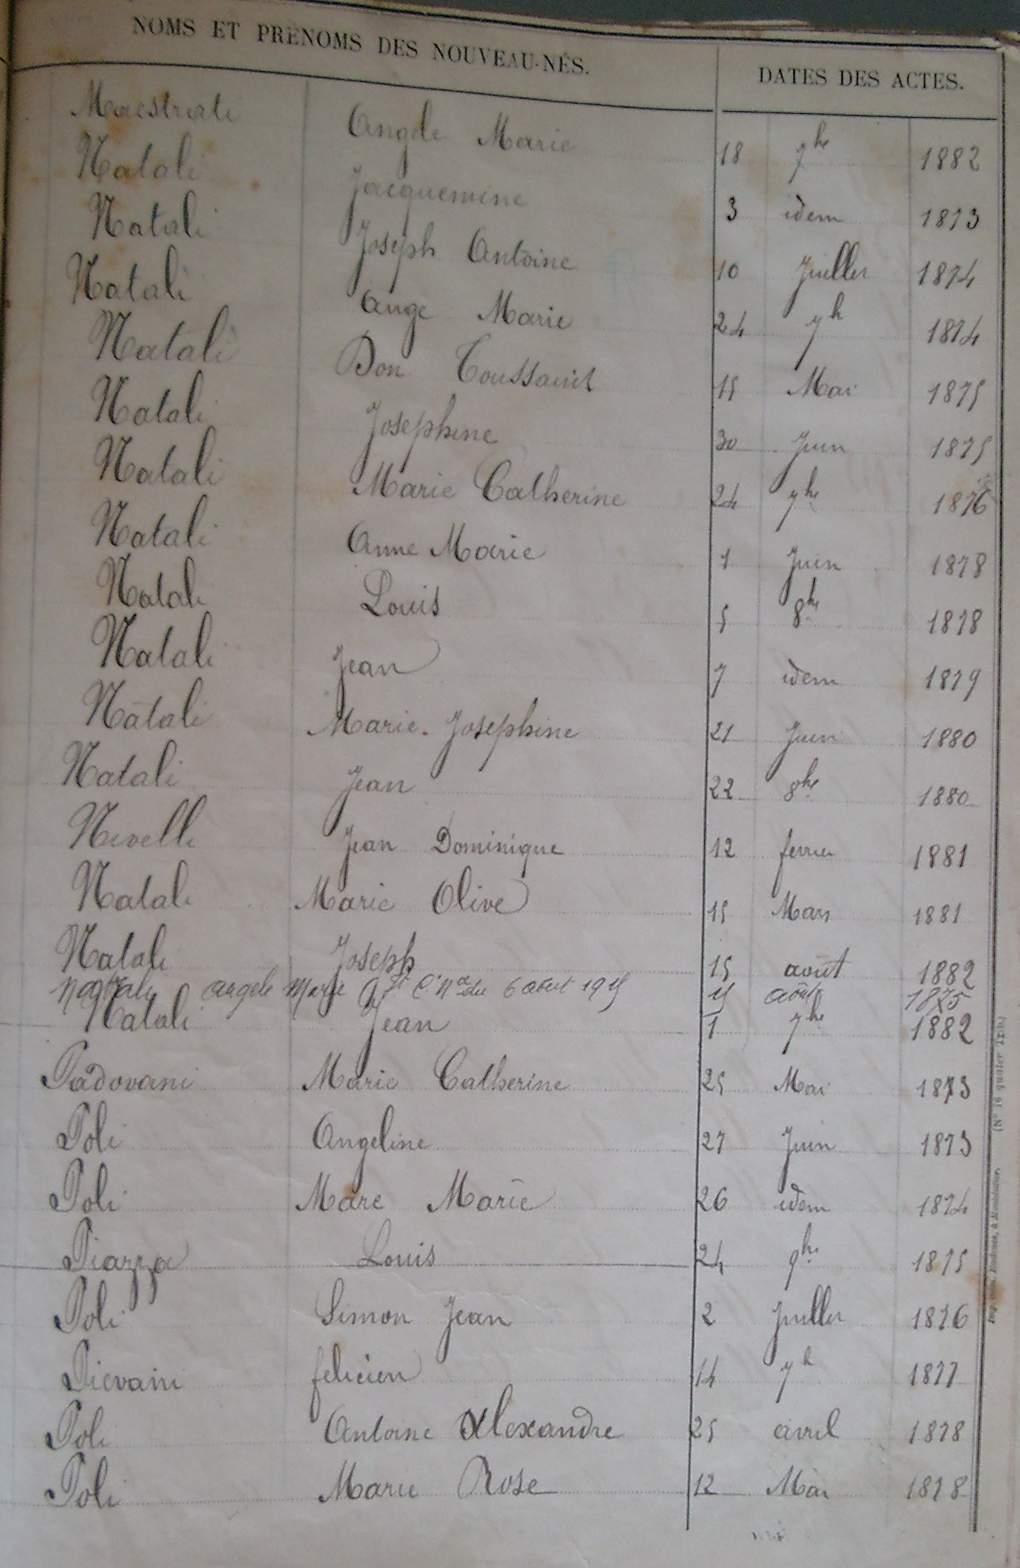 NOMS ET PRÉNOMS DES NOUVEAU-NÉS. DATES DES ACTES.
Maestrati Angele Marie 18 7bre 1882
Natali Jacquemine 3 idem 1873
Natali Joseph Antoine 10 Juillet 1874
Natali Ange Marie 24 7b 1874
Natali Don Toussaint 15 Mai 1875
Natali Josephine 30 Juin 1875
Natali Marie Catherine 24 9bre 1876
Natali Anne Marie 1 Juin 1878
Natali Louis 5 8bre 1878
Natali Jean 7 idem 1879
Natali Marie-Josephine 21 Juin 1880
Natali Jean 22 8bre 1880
Nevelle Jean Dominique 12 fevrier 1881
Natali Marie Olive 15 Mars 1881
Natali Joseph 15 août 1882
Natali Angele Marie 6 août 1915 août
Natali Jean 1 7bre 1882
Padovani Marie Catherine 25 Mai 1873
Poli Angeline 27 Juin 1873
Poli Marc Marie 26 idem 1874
Piazza Louis 24 9bre 1875
Poli Simon Jean 2 Juillet 1876
Pievani felicien 14 7b 1877
Poli Antoine Alexandre 25 avril 1878
Poli Marie Rose 12 Mai 1878